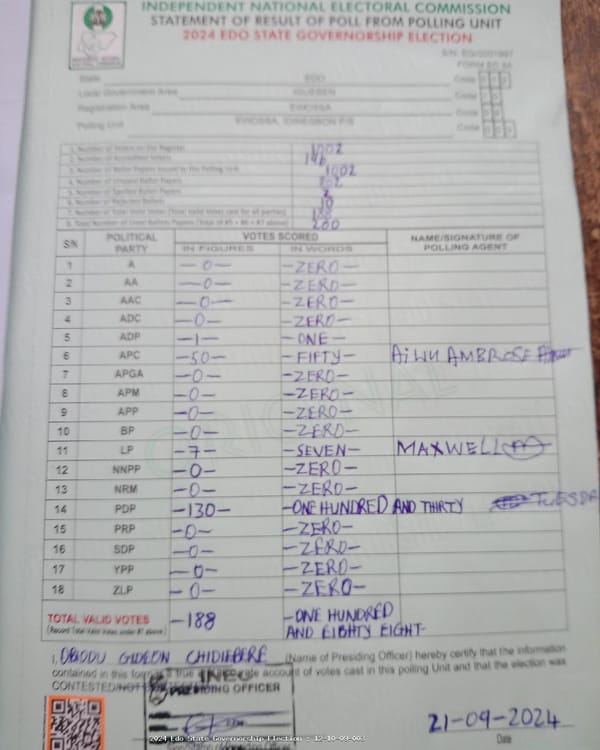 INDEPENDENT NATIONAL ELECTORAL COMMISSION
STATEMENT OF RESULT OF POLL FROM POLLING UNIT
2024 EDO STATE GOVERNORSHIP ELECTION
FORM EC 8A
State EDO Code
Local Government Area IGUEBEN Code
Registration Area EWOSSA Code
Polling Unit EWOSSA, Code
1. Number of Voters on the Register 1002
2. Number of Accredited Voters
3. Number of Ballot Papers Issued to the Polling Unit 1002
4. Number of Unused Ballot Papers 802
5. Number of Spoiled Ballot Papers 2
6. Number of Rejected Ballots 10
7. Number of Total Valid Votes (Total Valid Votes cast for all parties) 188
8. Total Number of Used Ballot Papers (Total of #5 + #6 + #7 above) 200
S/N POLITICAL PARTY VOTES SCORED NAME/SIGNATURE OF POLLING AGENT
IN FIGURES IN WORDS
1 A -0- -ZERO-
2 AA -0- -ZERO-
3 AAC -0- -ZERO-
4 ADC -0- -ZERO-
5 ADP -1- -ONE-
6 APC -50- -FIFTY- AiWU AMBROSE
7 APGA -0- -ZERO-
8 APM -0- -ZERO-
9 APP -0- -ZERO-
10 BP -0- -ZERO-
11 LP -7- -SEVEN- MAXWELL
12 NNPP -0- -ZERO-
13 NRM -0- -ZERO-
14 PDP -130- -ONE HUNDRED AND THIRTY TUESDA
15 PRP -0- -ZERO-
16 SDP -0- -ZERO-
17 YPP -0- -ZERO-
18 ZLP -0- -ZERO-
TOTAL VALID VOTES -188 -ONE HUNDRED
(Record Total Valid Votes under #7 above) AND EIGHTY EIGHT-
I, OBODU GIDEON CHIDIEBERE (Name of Presiding Officer) hereby certify that the information
contained in this form is true account of votes cast in this polling Unit and that the election was
CONTESTED/NOT
INEC
PRESIDING OFFICER
21-09-2024
Date
2024 Edo State Governorship Election : 12-10-09-003